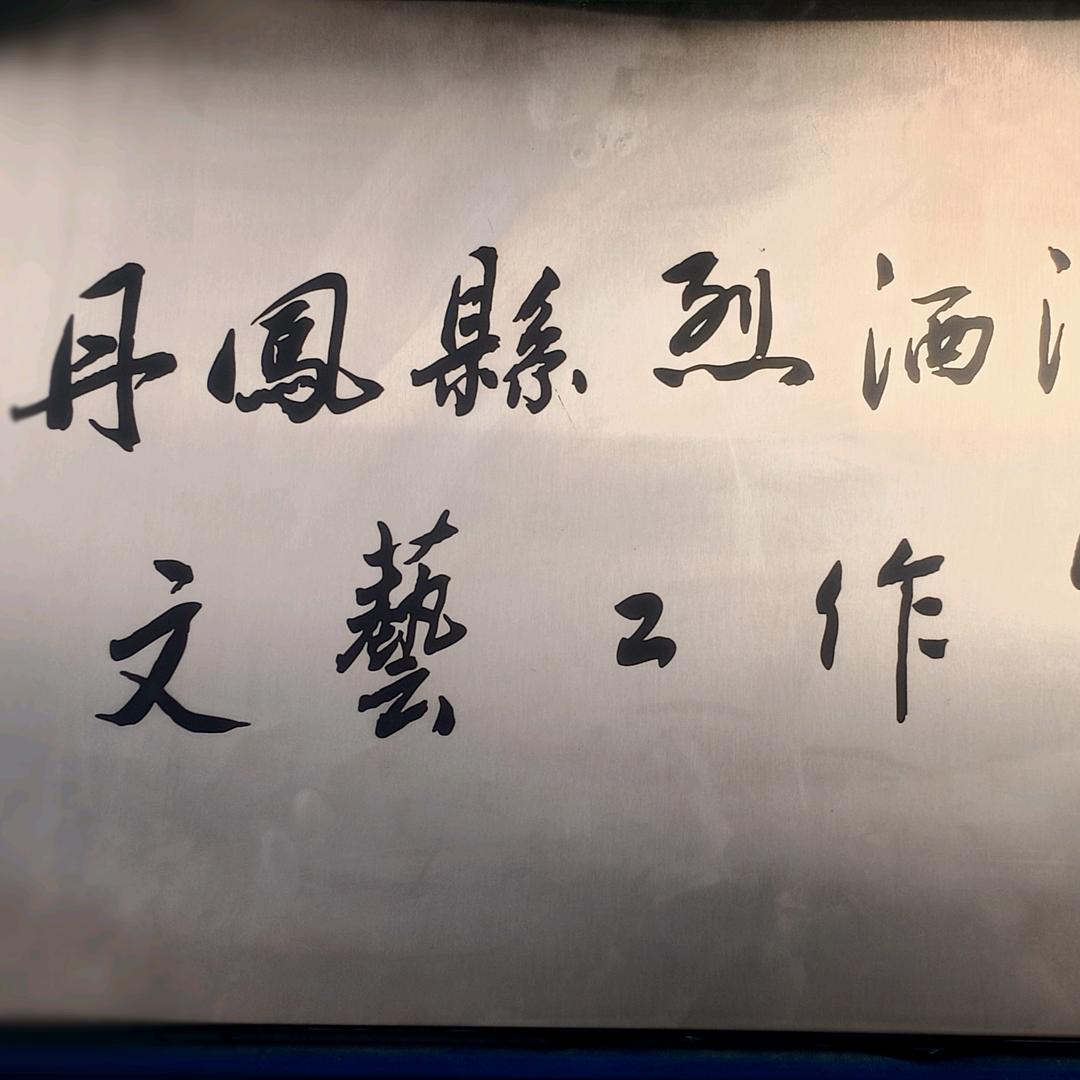 丹鳳縣烈洒
文藝工作